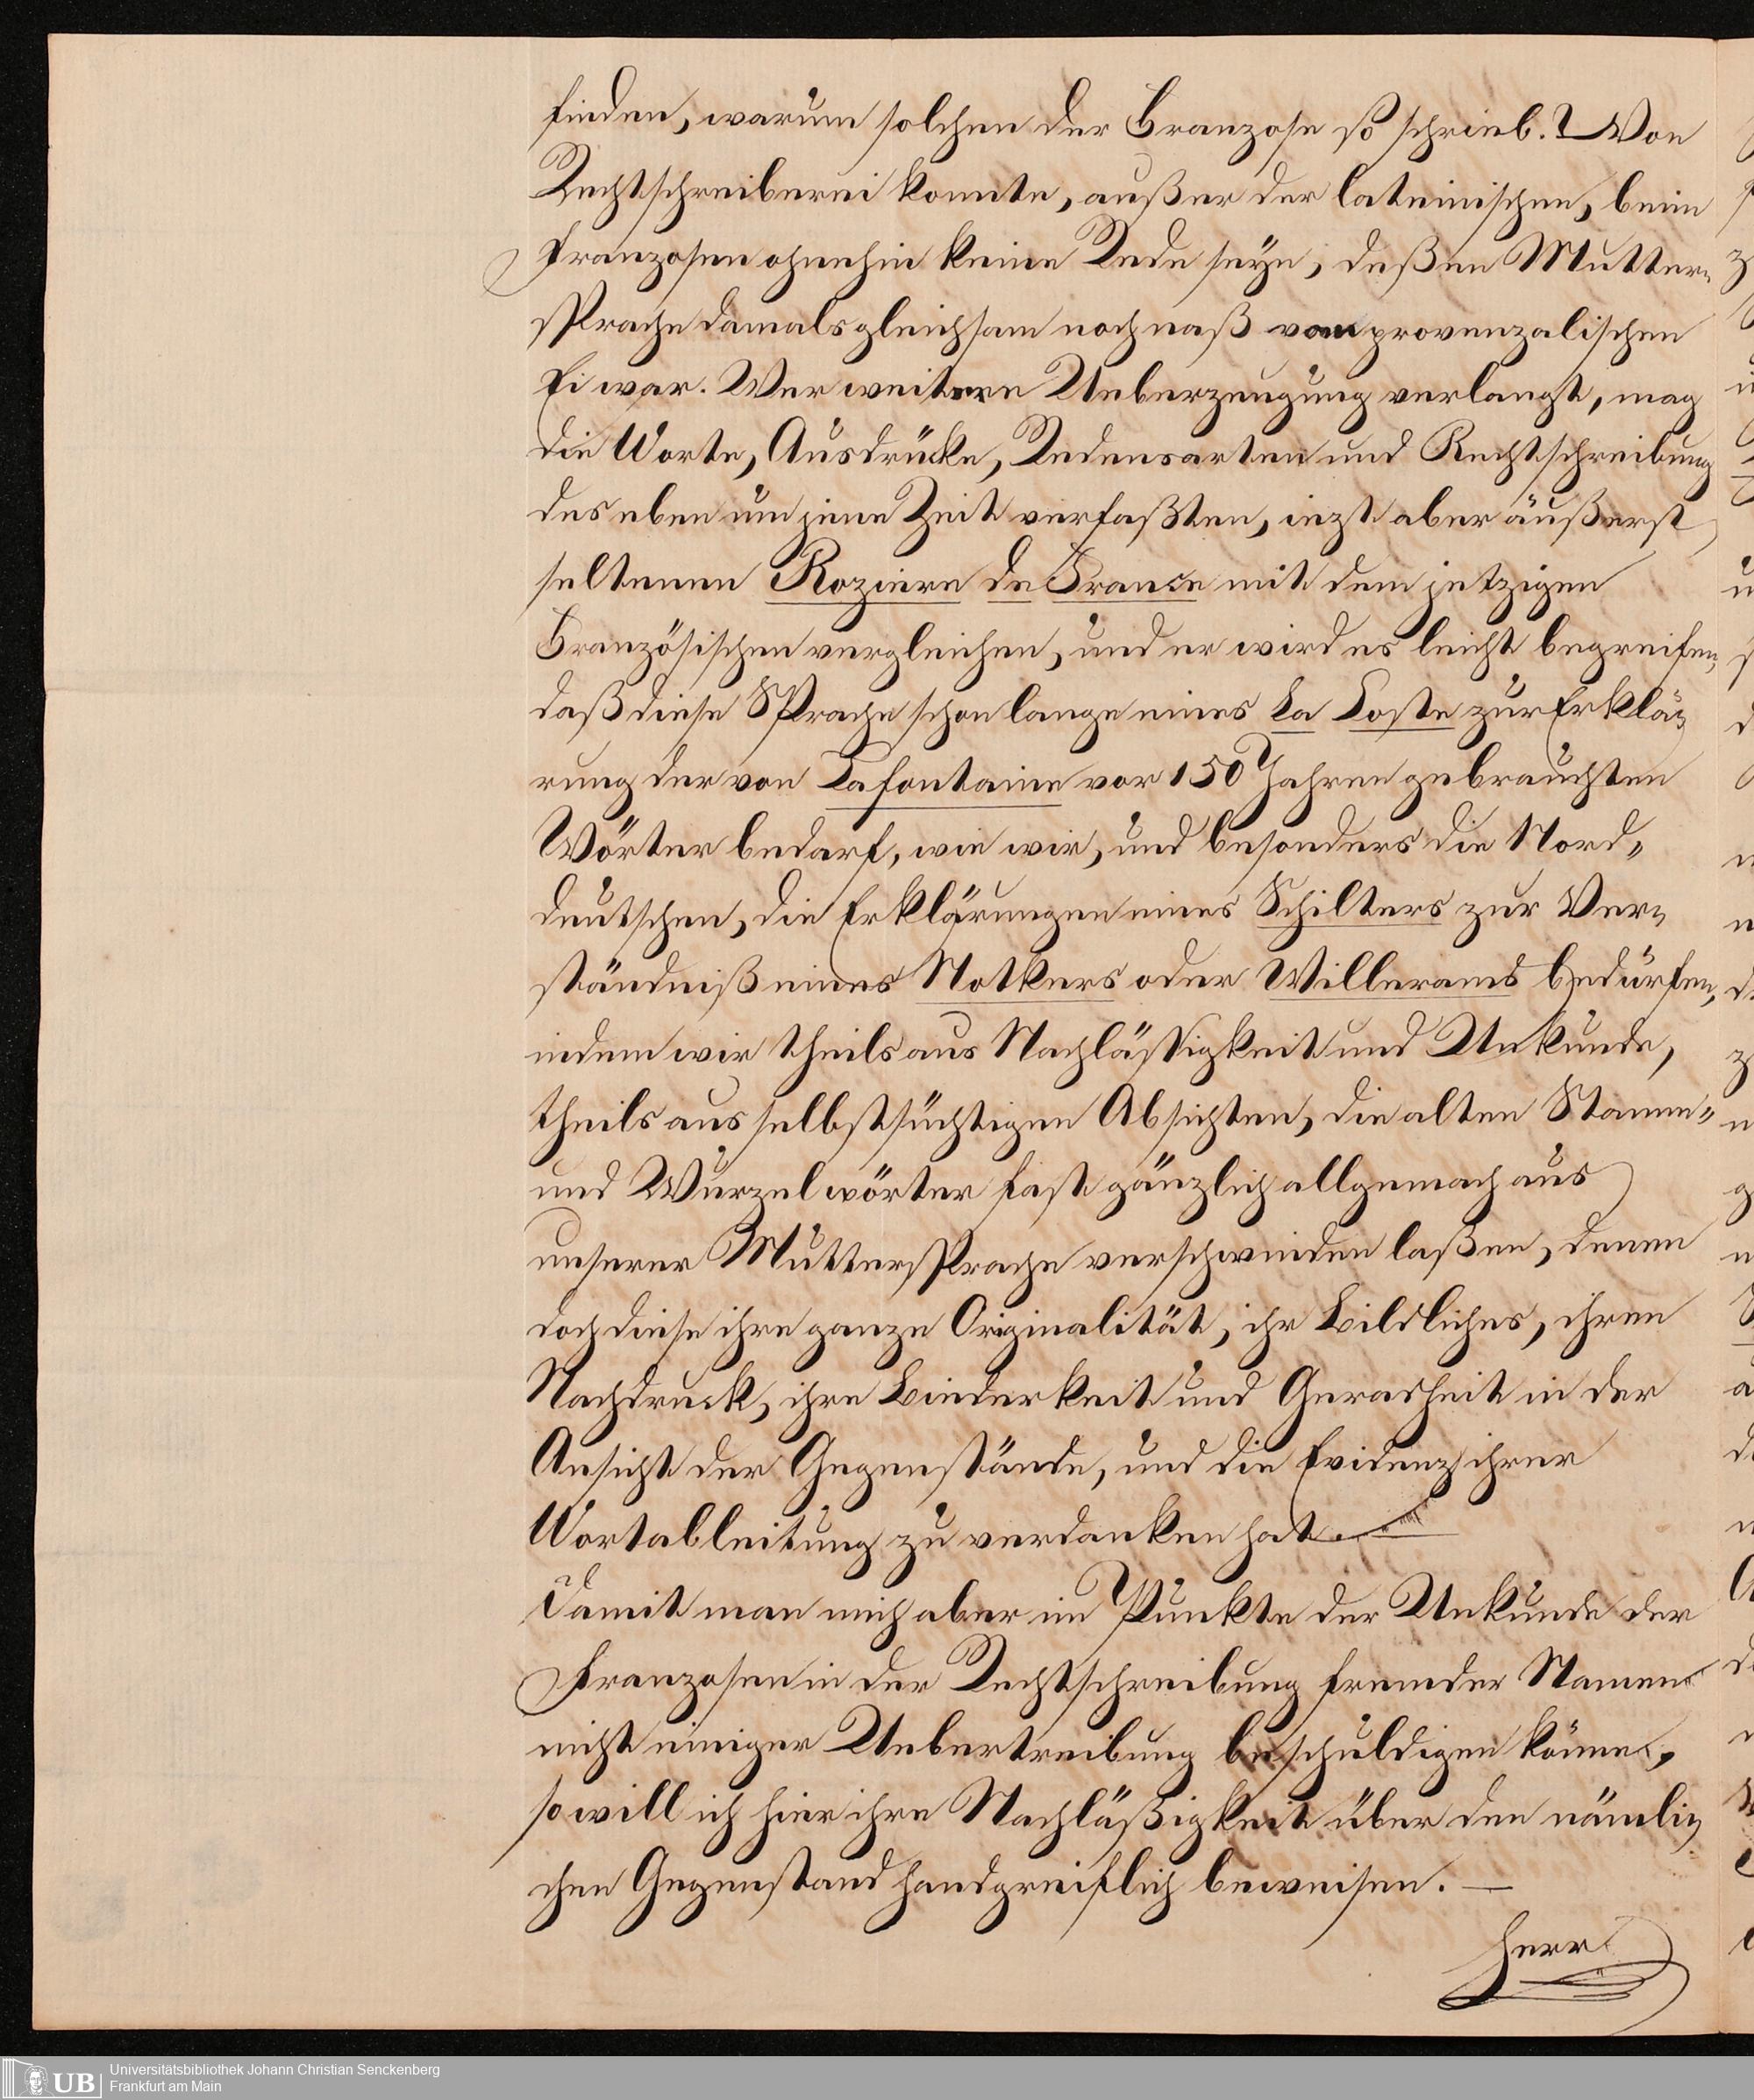 finden, warum solchen der Franzose so schrieb.? Von
Rechtschreiberei konnte, außer der lateinischen, beim
Franzosen ohnehin keine Rede seyn, deßen Mutter„
sprache damals gleichsam noch naß vom provenzalischen
Ei war. Wer weitere Ueberzeugung verlangt, mag
die Worte, Ausdrücke, Redensarten und Rechtschreibung
des eben um jene Zeit verfaßten, iezt aber äußerst
seltenen Roziere de France mit dem jetzigen
Französischen vergleichen, und er wird es leicht begreifen,
daß diese Sprache schon lange eines La Coste zur Erklä„
rung der von Lafontaine vor 150 Jahren gebrauchten
Wörter bedarf, wie wir, und besonders die Nord„
deutschen, die Erklärungen eines Schilters zur Ver„
ständniß eines Notkers oder Willerams bedürfen,
indem wir theils aus Nachläßigkeit und Unkunde,
theils aus selbstsüchtigen Absichten, die alten Stamm„
und Wurzelwörter fast gänzlich allgemach aus
unserer Muttersprache verschwinden laßen, denen
doch diese ihre ganze Originalität, ihr Bildliches, ihren
Nachdruck, ihre Biederkeit und Geradheit in der
Ansicht der Gegenstände, und die Evidenz ihrer
Wortableitung zu verdanken hat.
Damit man mich aber im Punkte der Unkunde der
Franzosen in der Rechtschreibung fremder Namen
nicht einiger Uebertreibung beschuldigen könne,
so will ich hier ihre Nachläßigkeit über den nämli„
chen Gegenstand handgreiflich beweisen. —
Herr
UB Universitätsbibliothek Johann Christian Senckenberg
Frankfurt am Main